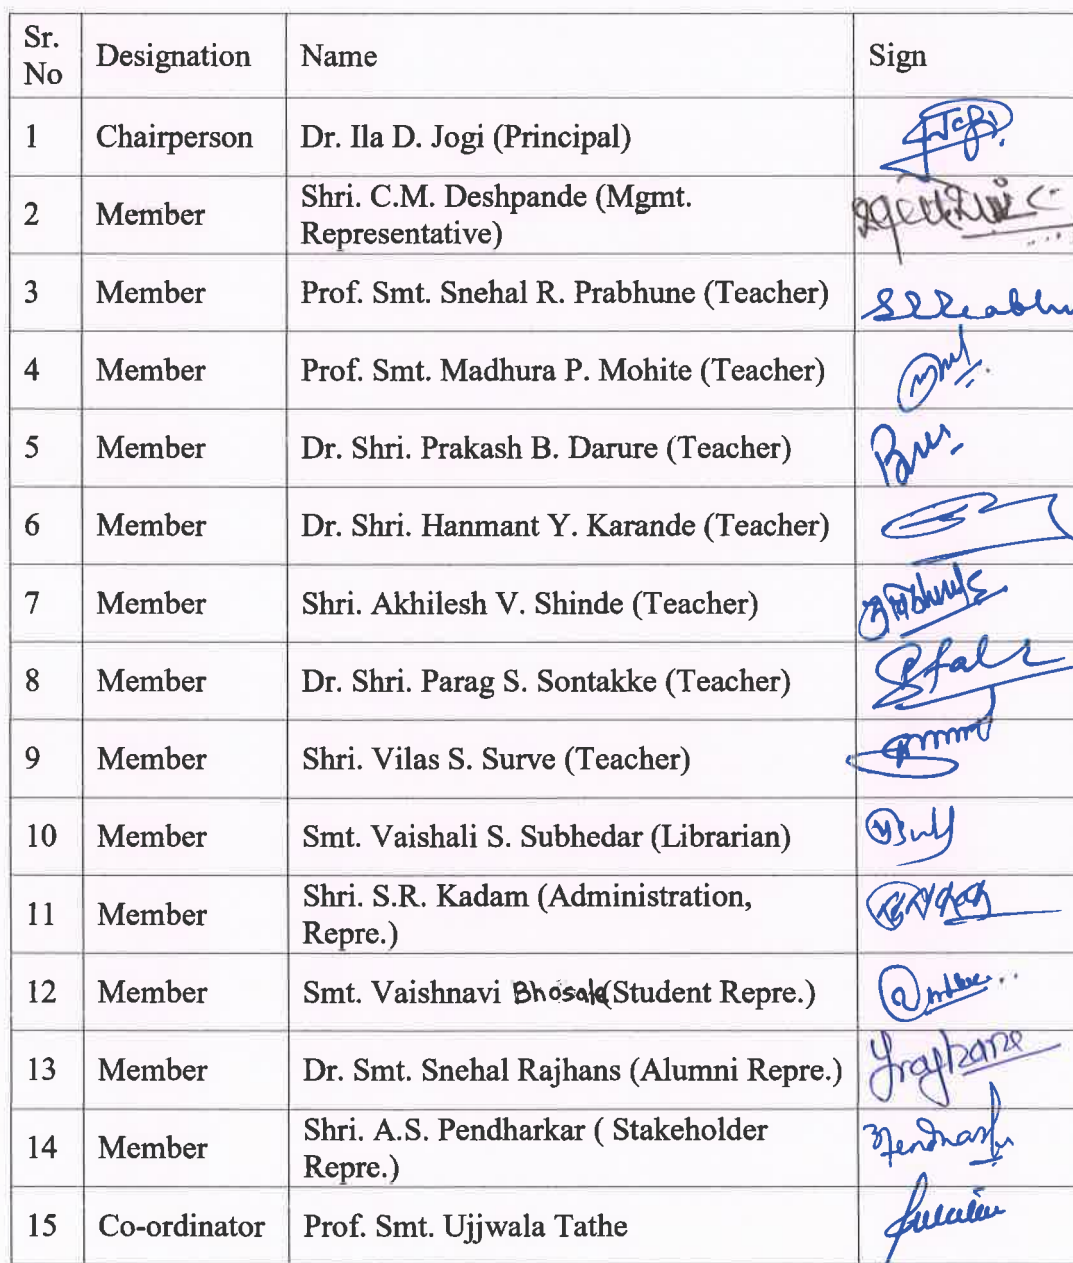 Sr. No Designation Name Sign
1 Chairperson Dr. Ila D. Jogi (Principal)
2 Member Shri. C.M. Deshpande (Mgmt.
Representative)
3 Member Prof. Smt. Snehal R. Prabhune (Teacher)
4 Member Prof. Smt. Madhura P. Mohite (Teacher)
5 Member Dr. Shri. Prakash B. Darure (Teacher)
6 Member Dr. Shri. Hanmant Y. Karande (Teacher)
7 Member Shri. Akhilesh V. Shinde (Teacher)
8 Member Dr. Shri. Parag S. Sontakke (Teacher)
9 Member Shri. Vilas S. Surve (Teacher)
10 Member Smt. Vaishali S. Subhedar (Librarian)
11 Member Shri. S.R. Kadam (Administration,
Repre.)
12 Member Smt. Vaishnavi Bhosale(Student Repre.)
13 Member Dr. Smt. Snehal Rajhans (Alumni Repre.)
14 Member Shri. A.S. Pendharkar ( Stakeholder
Repre.)
15 Co-ordinator Prof. Smt. Ujjwala Tathe